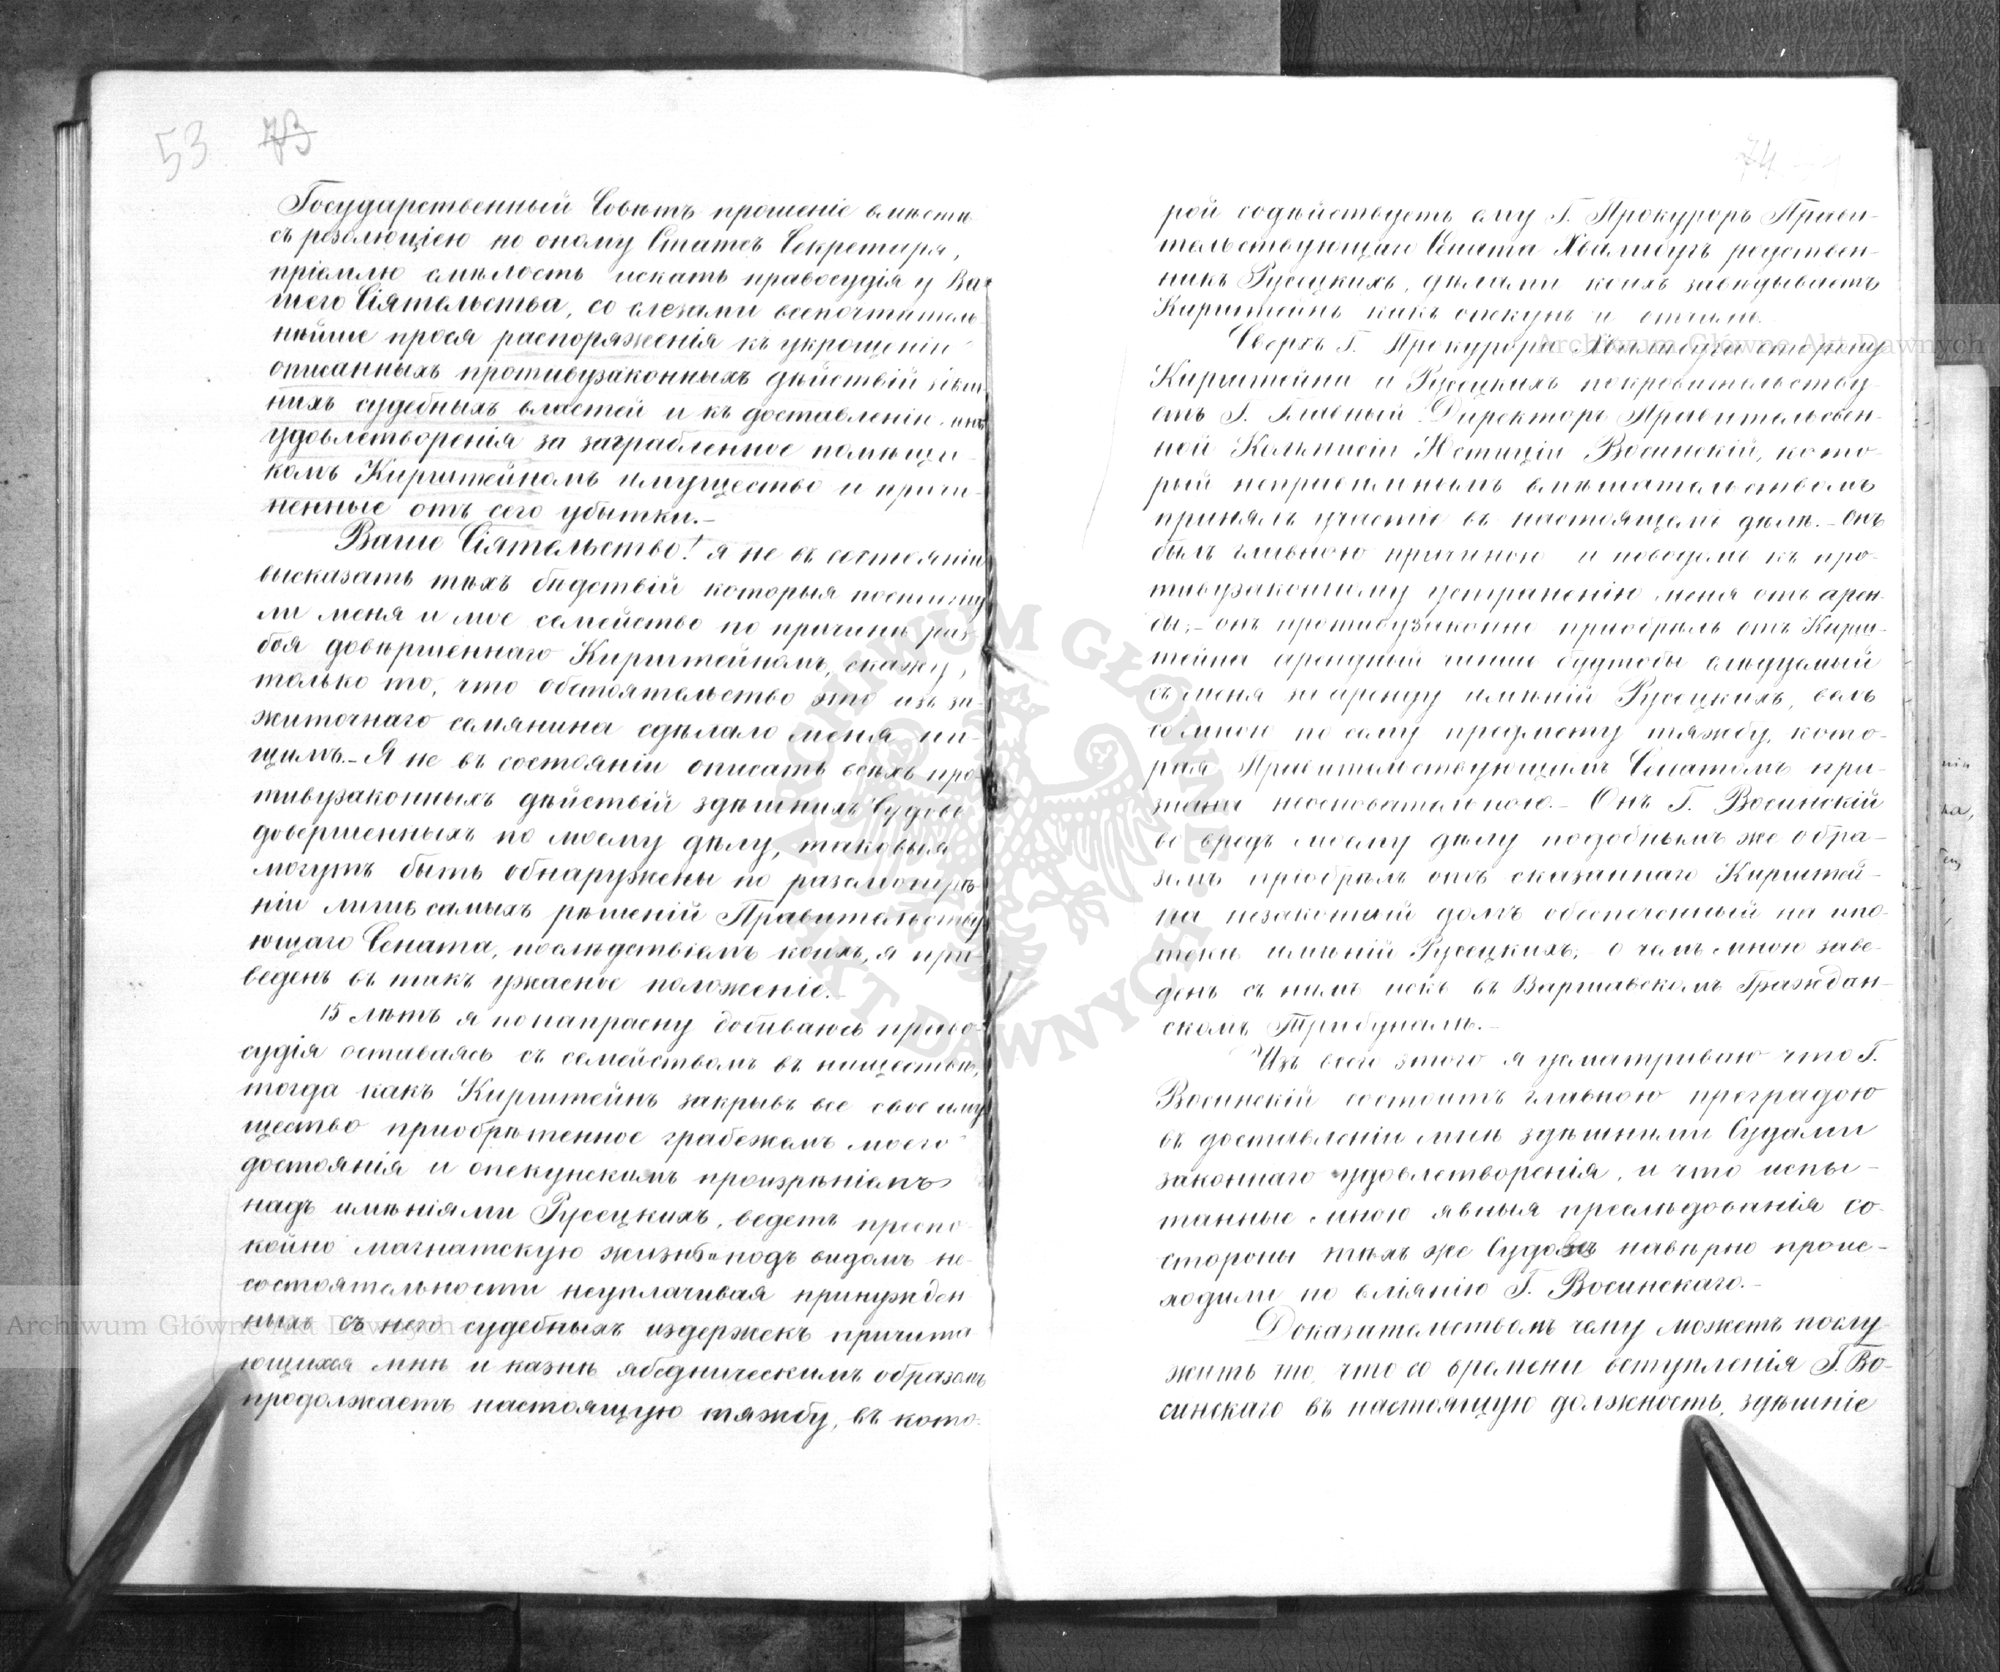 53 73
Государственный Совѣтъ прошеніе вмѣстѣ
съ резолюціею по оному Статсъ Секретаря,
пріемлю смѣлость искать правосудія у Ва-
шего Сіятельства, со слезами всепочтитель-
нѣйше прося распоряженія къ укрощенію
описанныхъ противузаконныхъ дѣйствій здѣш-
нихъ судебныхъ властей и къ доставленію мнѣ
удовлетворенія за заграбленное помѣщи-
комъ Кирштейномъ имущество и причи-
ненные отъ сего убытки.-
Ваше Сіятельство! я не въ состояніи
высказать тѣхъ бѣдствій которыя постигну-
ли меня и мое семейство по причинѣ раз-
боя довершеннаго Кирштейномъ, скажу,
только то, что обстоятельство это изъ за-
житочнаго семянина сдѣлало меня ни-
щимъ.- Я не въ состояніи описать всѣхъ про
тивузаконныхъ дѣйствій здѣшнихъ Судовъ
довершенныхъ по моему дѣлу, таковыя
могутъ быть обнаружены по разсмотрѣ-
ніи лишь самыхъ рѣшеній Правительству-
ющаго Сената, послѣдствіемъ коихъ, я при-
веденъ въ такъ ужасное положеніе.-
15 лѣтъ я понапрасну добиваюсь право-
судія оставаясь съ семействомъ въ нищетѣ,
тогда какъ Кирштейнъ закрывъ все свое иму
щество приобрѣтенное грабежемъ моего
достоянія и опекунскимъ произрѣніемъ
надъ имѣніями Русецкихъ, ведетъ преспо-
койно магнатскую жизнь и подъ видомъ не-
состоятельности неуплачивая принужден
ныхъ съ него судебныхъ издержекъ причита
ющихся мнѣ и казнѣ ябедническимъ образомъ
продолжаетъ настоящую тяжбу, въ кото-
74
рой содѣйствуетъ ему Г. Прокуроръ Прави-
тельствующаго Сената Хвалибугъ родствен-
никъ Русецкихъ, дѣлами коихъ завѣдываетъ
Кирштейнъ какъ опекунъ и отчимъ.
Сверхъ Г. Прокурора Хвалибуга сторону
Кирштейна и Русецкихъ покровительству-
етъ Г. Главный Директоръ Правительствен-
ной Коммисіи Юстиціи Восинскій, кото-
рый неприемлимымъ вмѣшательствомъ
принялъ участіе въ настоящемъ дѣлѣ.- Онъ
былъ главною причиною и поводомъ къ про-
тивузаконному устраненію меня отъ арен-
ды;- онъ противузаконно приобрѣлъ отъ Кирш-
тейна арендный чиншъ будтобы слѣдуемый
съ меня за аренду имѣній Русецкихъ, велъ
со мною по сему предмету тяжбу, кото-
рая Правительствующимъ Сенатомъ при-
знана неосновательною.- Онъ Г. Восинскій
во вредъ моему дѣлу подобнымъ же обра-
зомъ пріобрѣлъ отъ сказаннаго Кирштей-
на незаконный долгъ обезпеченный на ипо-
теки имѣній Русецкихъ; о чемъ мною заве-
денъ съ нимъ искъ въ Варшавскомъ Граждан-
скомъ Трибуналѣ.-
Изъ всего этого я усматриваю что Г.
Восинскій состоитъ главною преградою
въ доставленіи мнѣ здѣшними Судами
законнаго удовлетворенія, и что испы-
танные мною явныя преслѣдованія со
стороны тѣхъ же Судовъ навѣрно проис-
ходили по вліянію Г. Восинскаго.-
Доказательствомъ чему можетъ послу-
жить то, что со времени вступленія Г. Во-
синскаго въ настоящую должность, здѣшніе
Archiwum Główne Akt Dawnych
Archiwum Główne Akt Dawnych
ARCHIWUM GŁÓWNE AKT DAWNYCH